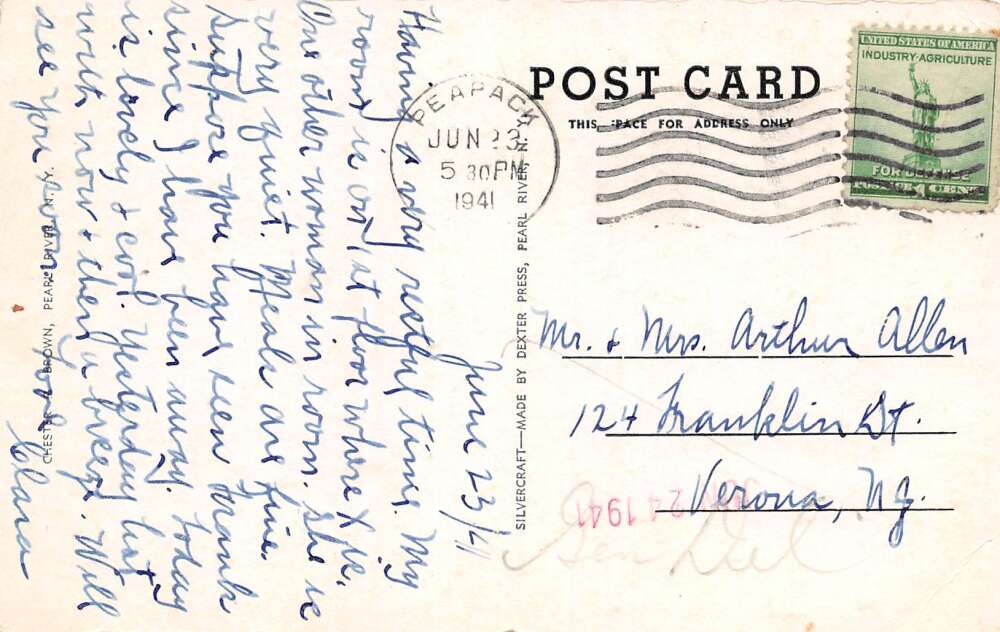 June 23/41
Having a very restful time. My
room is on 1st floor where X is.
One other woman in room. She is
very quiet. Meals are fine.
Suppose you have seen Frank
since I have been away. Today
is lovely & cool. Yesterday hot
with now & then a breeze. Will
see you soon. Love
Clara
CHESTER H. BROWN, PEARL RIVER, N. Y.
SILVERCRAFT—MADE BY DEXTER PRESS, PEARL RIVER, N. Y.
PEAPACK
JUN 23
5 30 PM
1941
POST CARD
THIS SPACE FOR ADDRESS ONLY
UNITED STATES OF AMERICA
INDUSTRY·AGRICULTURE
FOR DEFENSE
POSTAGE 1 CENT
Mr. & Mrs. Arthur Allen
124 Franklin St.
Verona, N.J.
24 1941
Gen Del